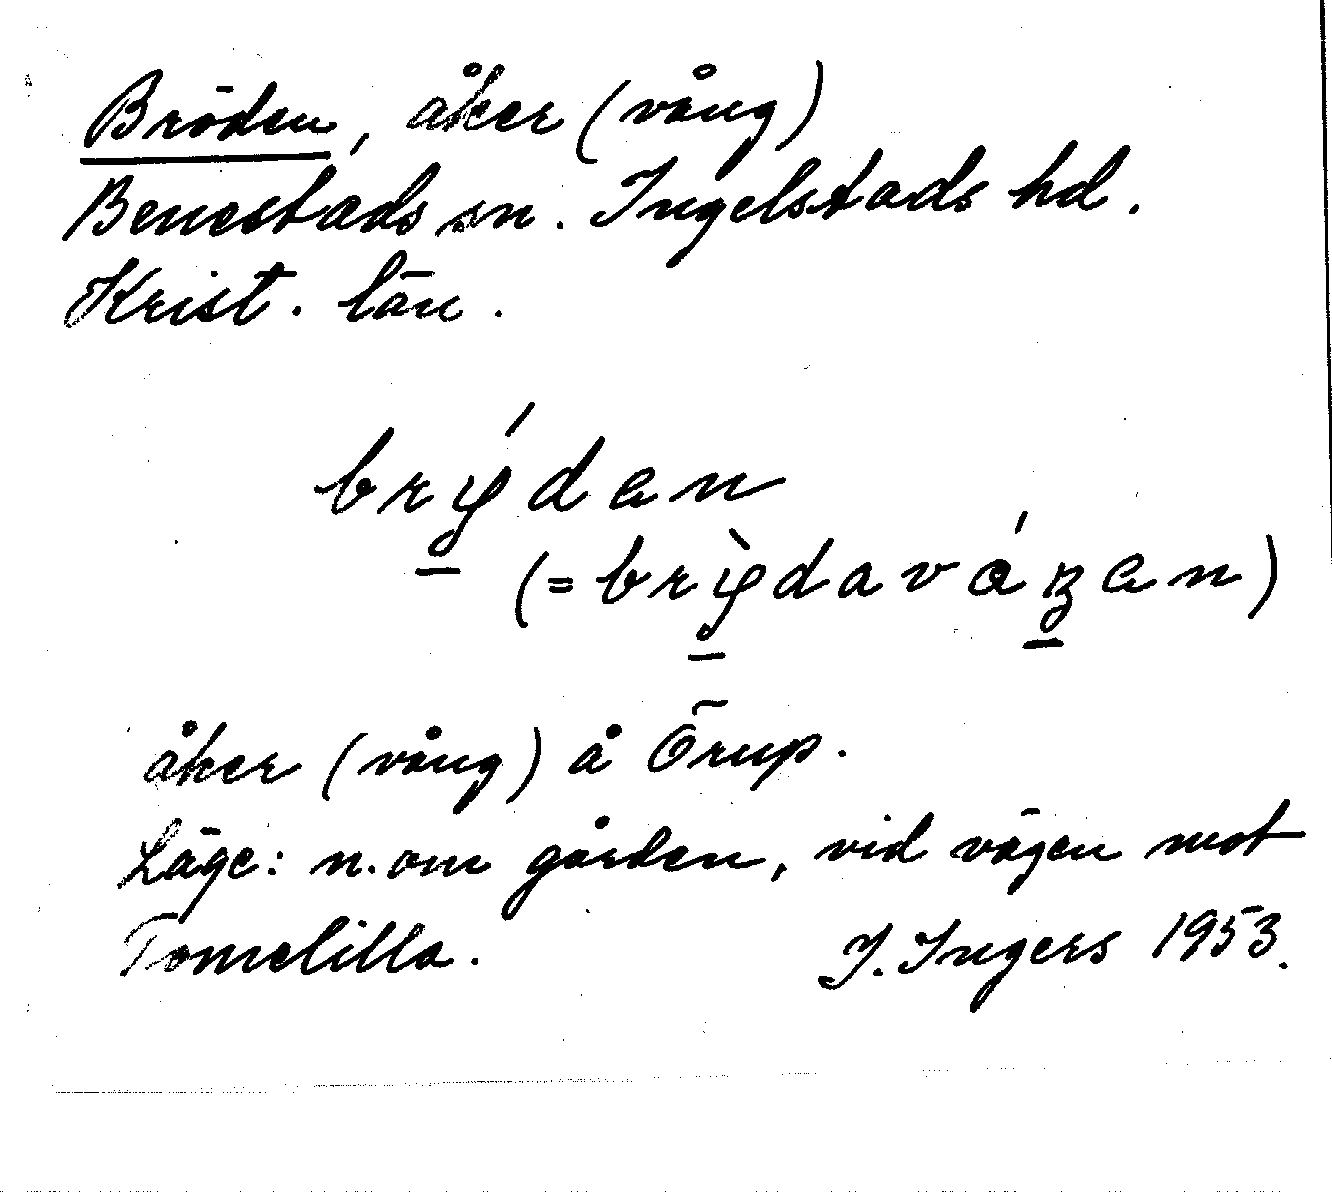 Bröden, åker (vång)
Benestads sn. Ingelstads hd.
Krist. län.
brýden
(= brỳdavázen)
åker (vång) å Örup.
Läge: n. om gården, vid vägen mot
Tomelilla. I. Ingers 1953.